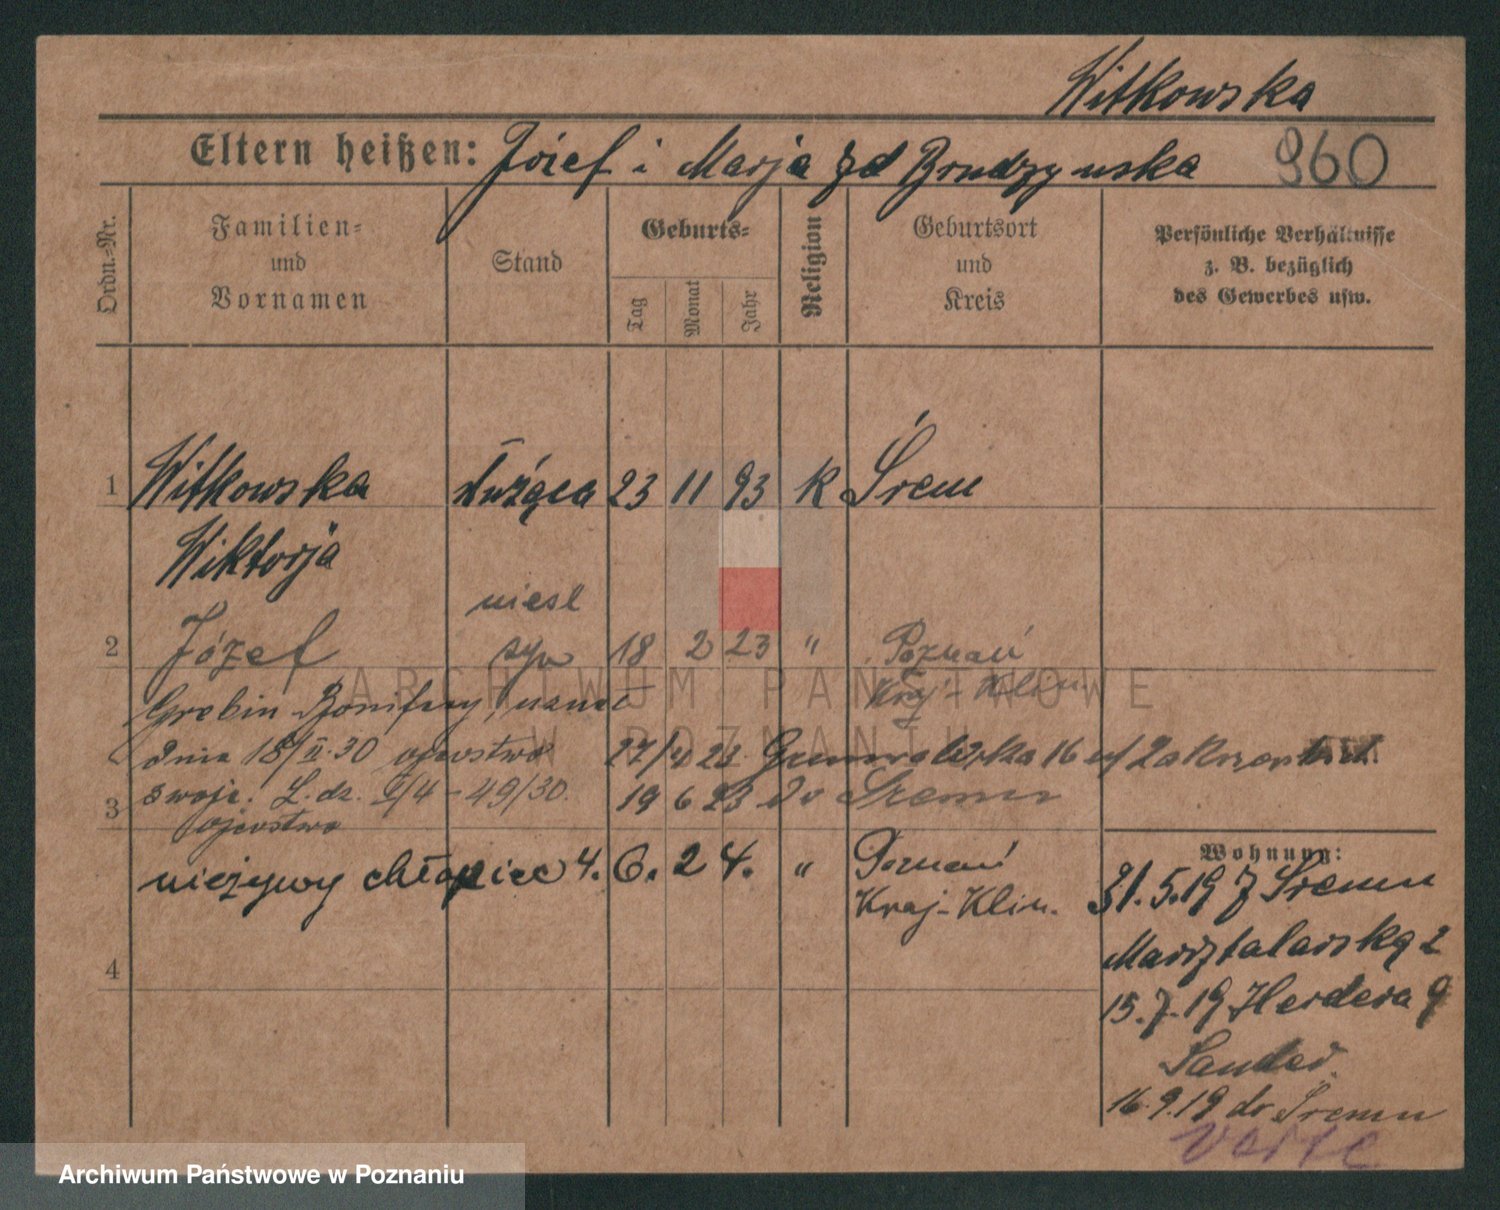 Witkowska
Eltern heißen: Józef i Marja zd Brudzyńska 960
Ordn.-Nr.
Familien- und Vornamen
Stand
Geburts-
Tag Monat Jahr
Religion
Geburtsort und Kreis
Persönliche Verhältnisse z. B. bezüglich des Gewerbes usw.
1 Witkowska służąca 23 11 93 k Śrem
Wiktorja
nieśl
2 Józef syn 18 2 23 " Poznań
Kraj-Klin
Grebin Bonifacy, uznał
dnia 18/II.30 ojcostwo 27/4 23 Grunwaldzka 16
3 swoje. L. dz. 4 - 49/30. 19 6 23 do Śremu
ojcostwo
nieżywy chłopiec 4. 6. 24. " Poznań
Kraj-Klin.
4
Wohnung:
31.5.19 z Śremu
Masztalarska 2
15.7.19 Herdera 9
16.9.19 do Śremu
verte
ARCHIWUM PAŃSTWOWE
W POZNANIU
Archiwum Państwowe w Poznaniu